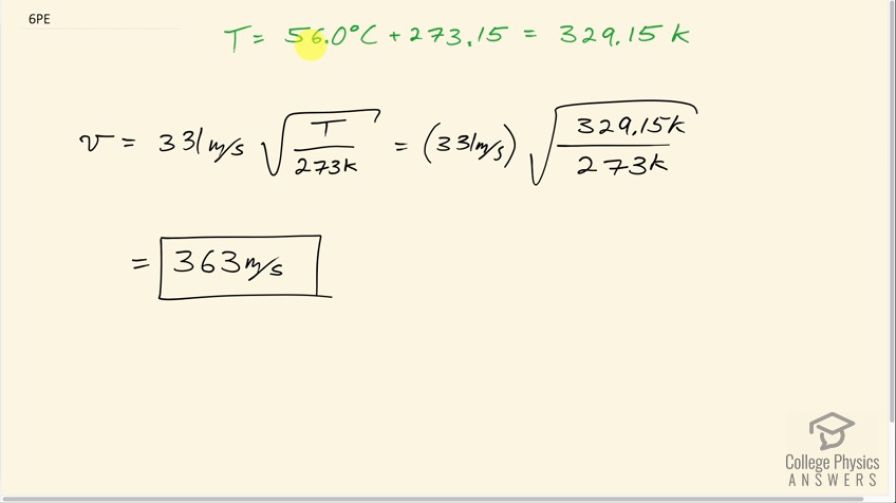 6PE
T = 56.0°C + 273.15 = 329.15 k
v = 331 m/s √(T/273k) = (331 m/s) √(329.15k/273k)
= 363 m/s
College Physics
ANSWERS